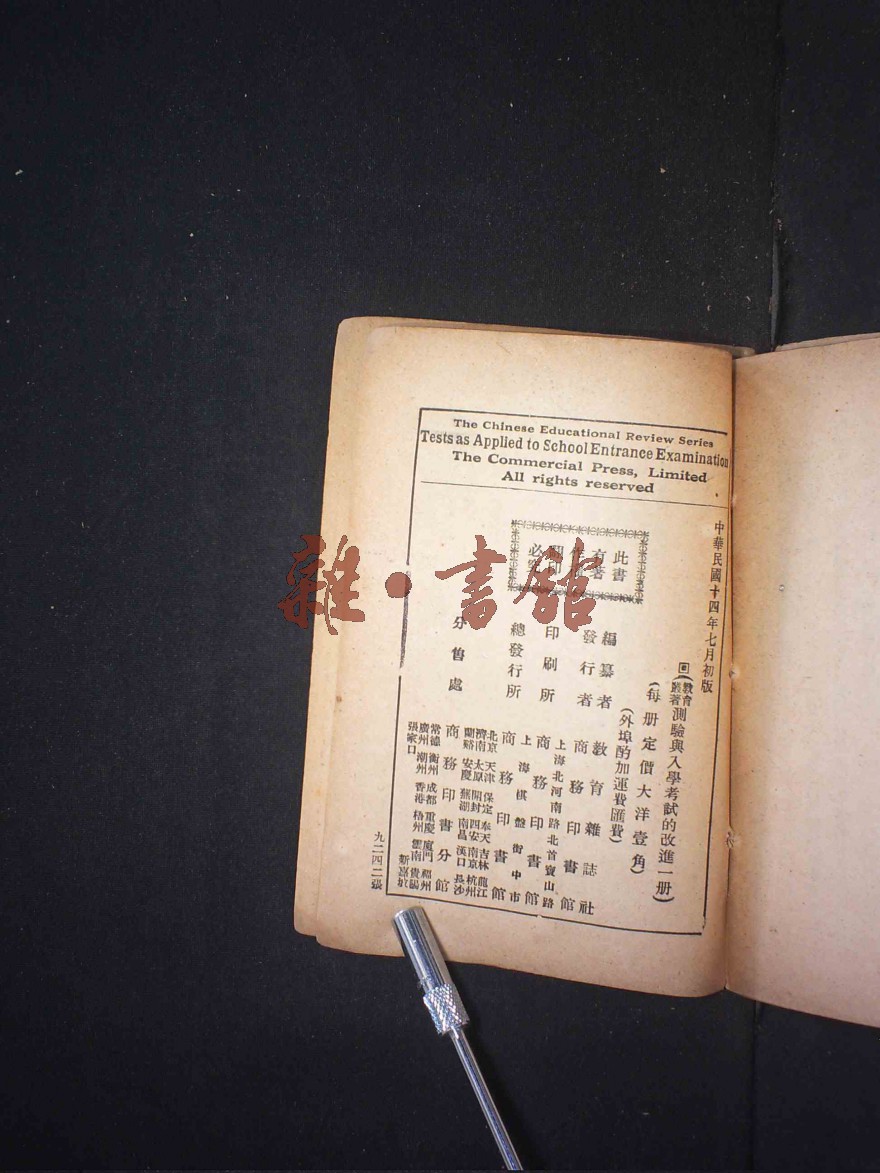 The Chinese Educational Review Series
Tests as Applied to School Entrance Examination
The Commercial Press, Limited
All rights reserved
中華民國十四年七月初版
教育叢著
測驗與入學考試的改進一册
(每册定價大洋壹角)
(外埠酌加運費匯費)
編纂者 教育雜誌社
發行者 商務印書館
上海北河南路北首寶山路
印刷所 商務印書館
上海棋盤街中市
總發行所 商務印書館
北京 天津 保定 奉天 吉林 龍江
濟南 太原 開封 西安 南京 杭州
蘭谿 安慶 蕪湖 南昌 漢口 長沙
分售處 商務印書分館
常德 衡州 成都 重慶 廈門 福州
廣州 潮州 香港 梧州 雲南 貴陽
張家口 新嘉坡
此書
有著
必
九二四二張
雜·書館